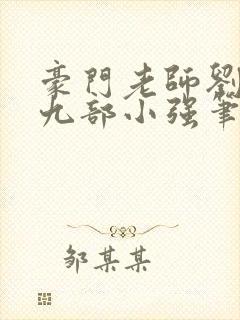 豪門老師劉
九部小强筆
邹某某